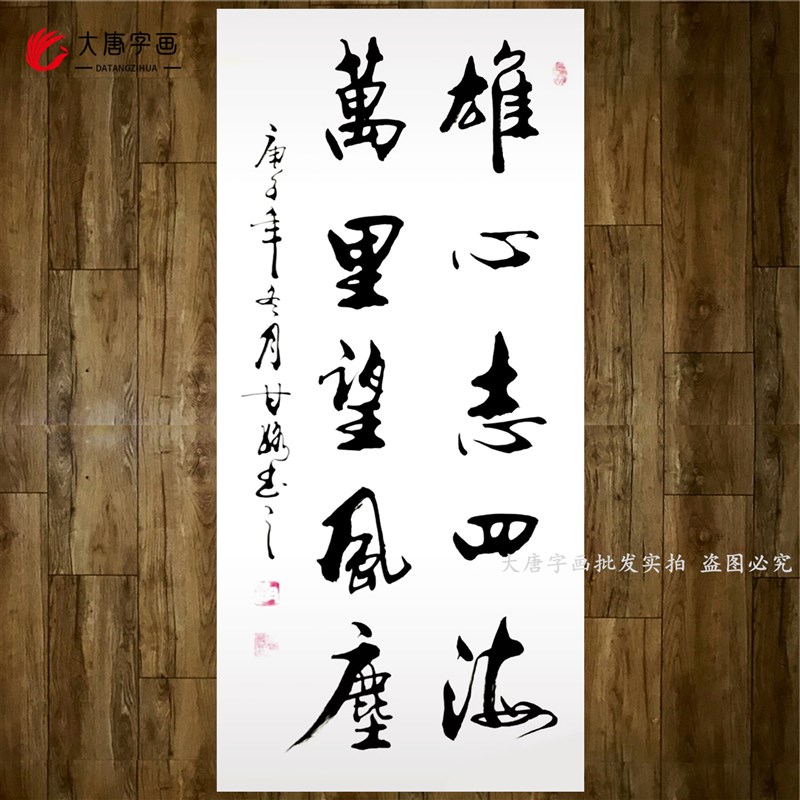 大唐字画
DATANGZIHUA
雄心志四海
萬里望風塵
庚子年冬月甘露书之
大唐字画批发实拍 盗图必究